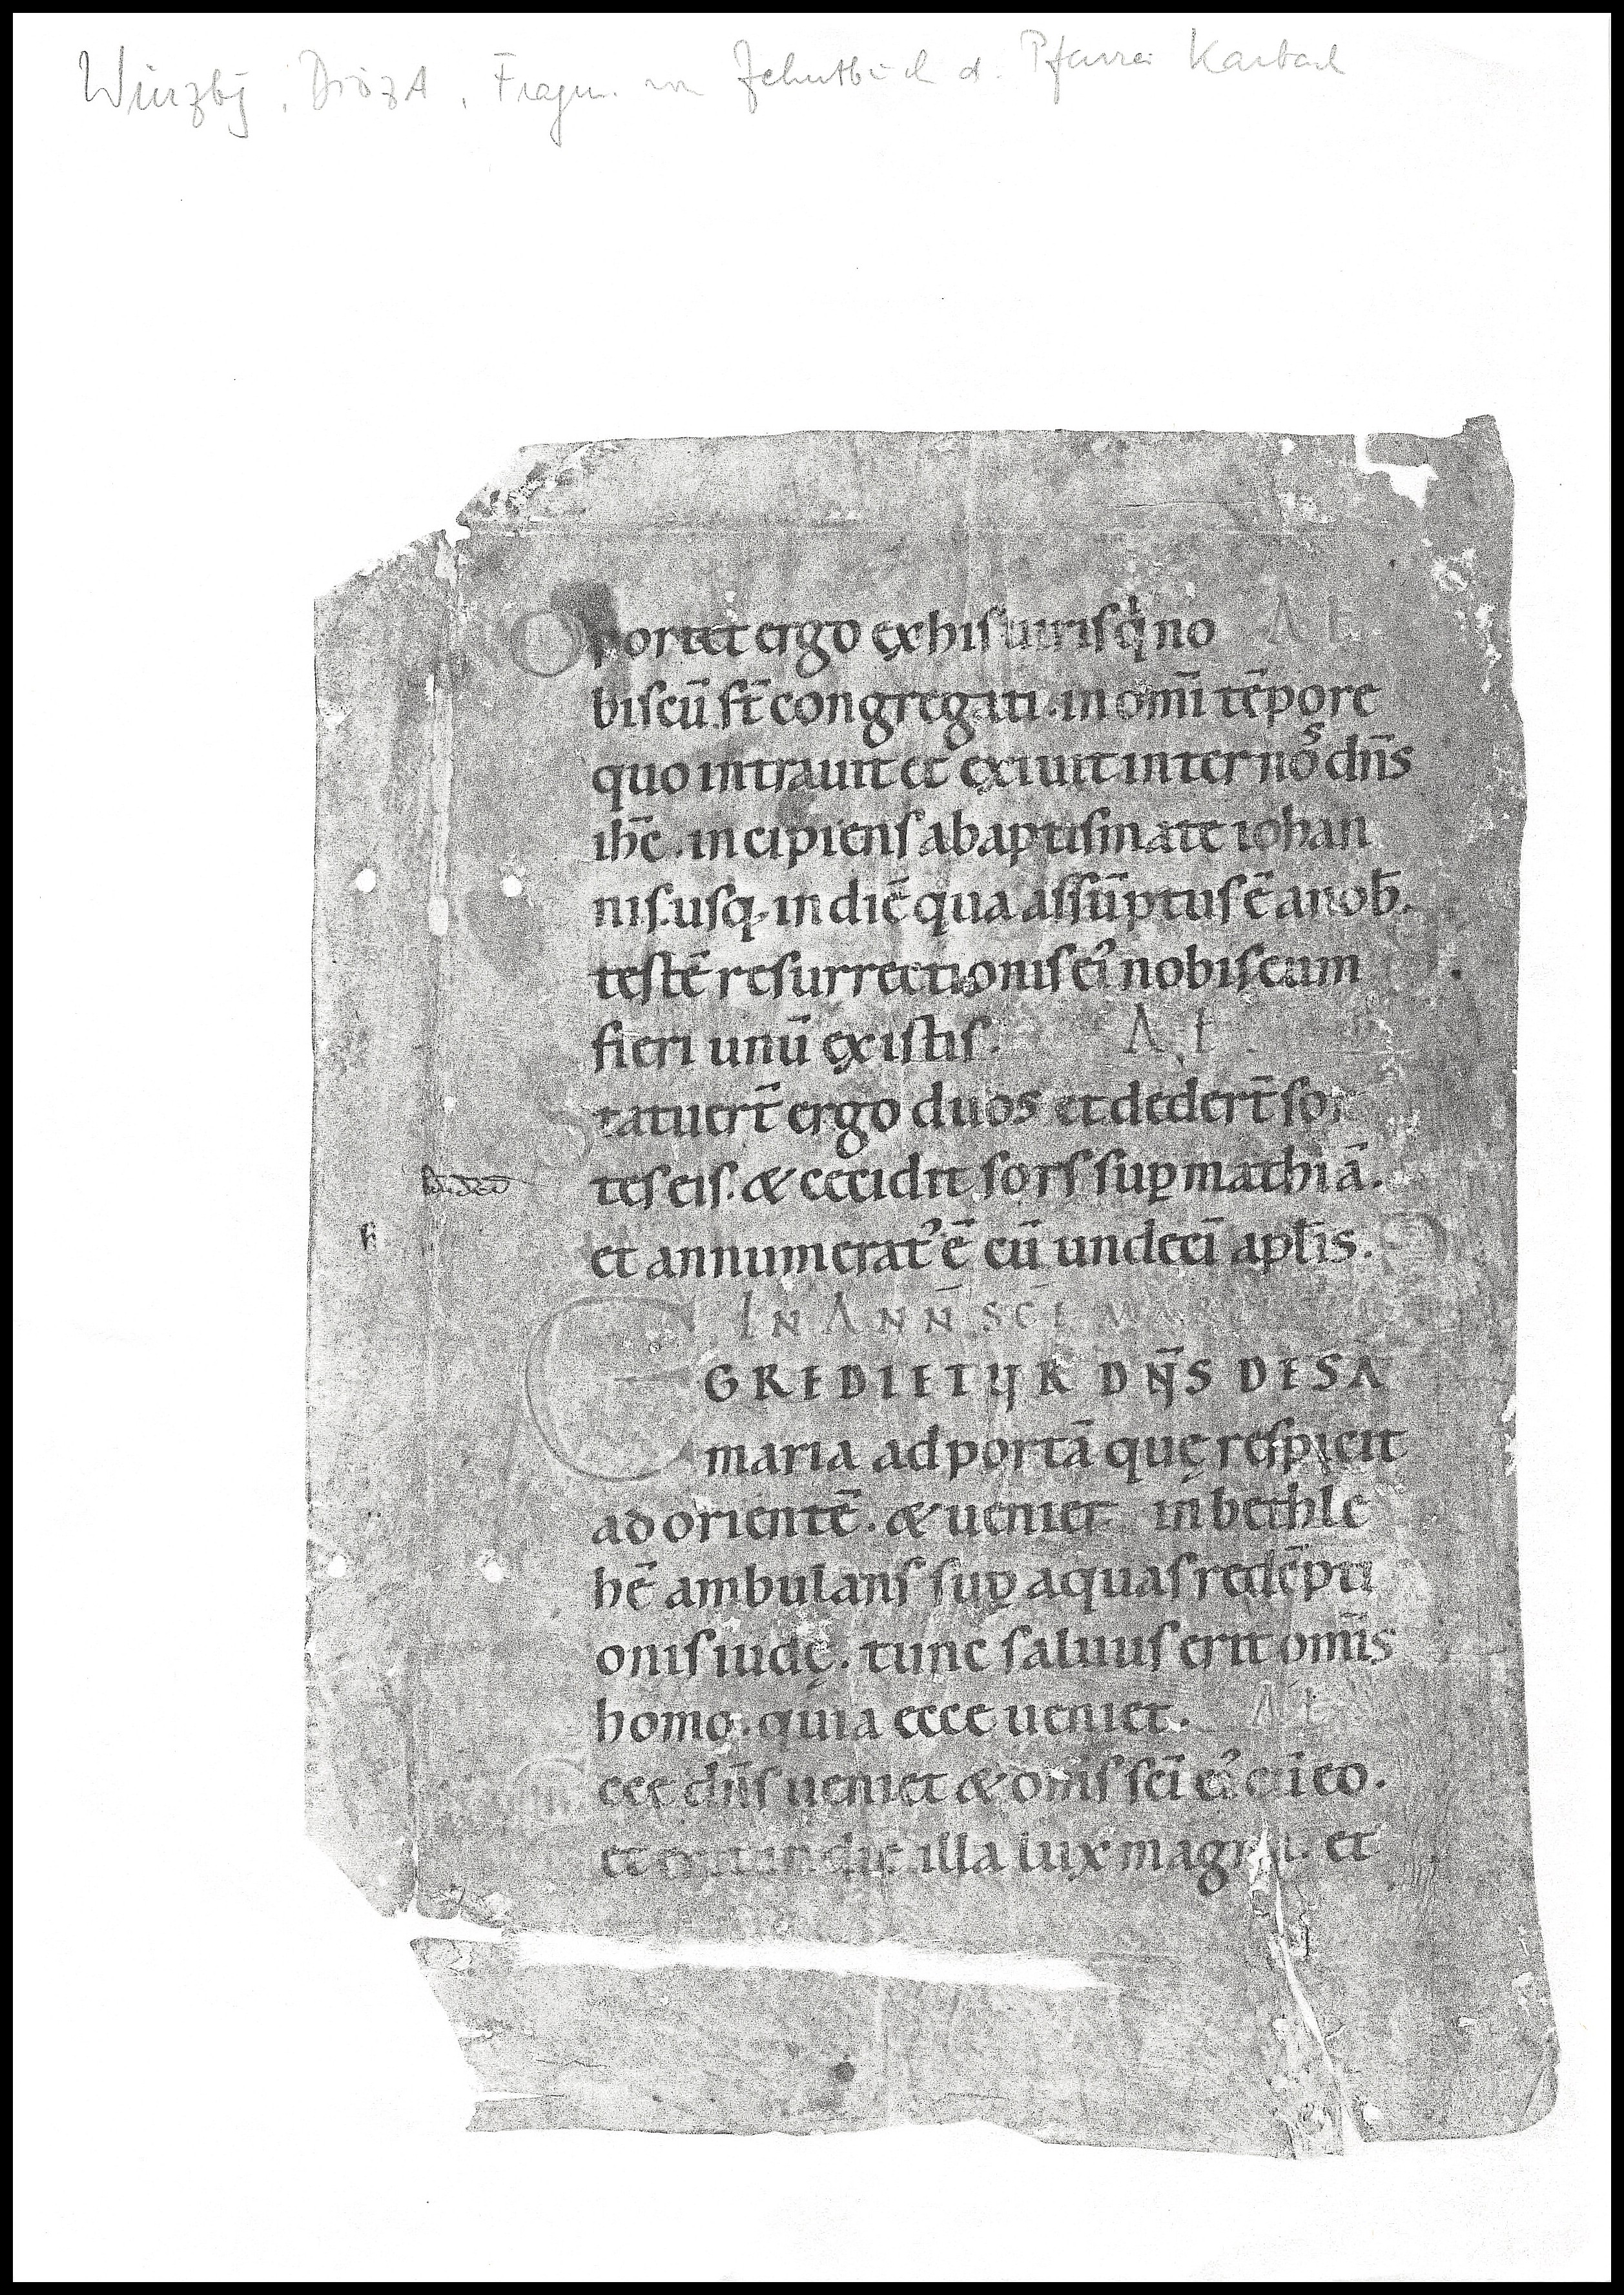 Würzbg, DiözA, Fragm. von Zehntbuch d. Pfarrei Karbach
Oportet ergo ex his uirisq́ no AŁ
biscū. st̄ congregati. in om̄i tēpore
quo intrauit et exiuit inter nos dn̄s
ih̄c. incipiens abaptismate iohan
nis. usq. in diē qua assūptus ē anob̄.
testē resurrectionis ei᾽ nobiscum
fieri unū ex istis. AŁ
Statuert̄ ergo duos et dedert̄ sor
tes eis. & cecidit sors suꝑ mathiā.
et annumerat᾽ ē cū undecī apłis.
IN ANN̄ SC̄E MARI
EGREDIETUR DN̄S DE SA
maria ad portā quę respicit
ad orientē. & ueniet in bethle
hē ambulans suꝑ aquas redēpti
onis iudę. tunc saluus erit om̄is
homo. quia ecce ueniet. AŁ
Ecce dn̄s ueniet & om̄s sc̄i ei᾽ cū eo.
et erit in die illa lux magna. et